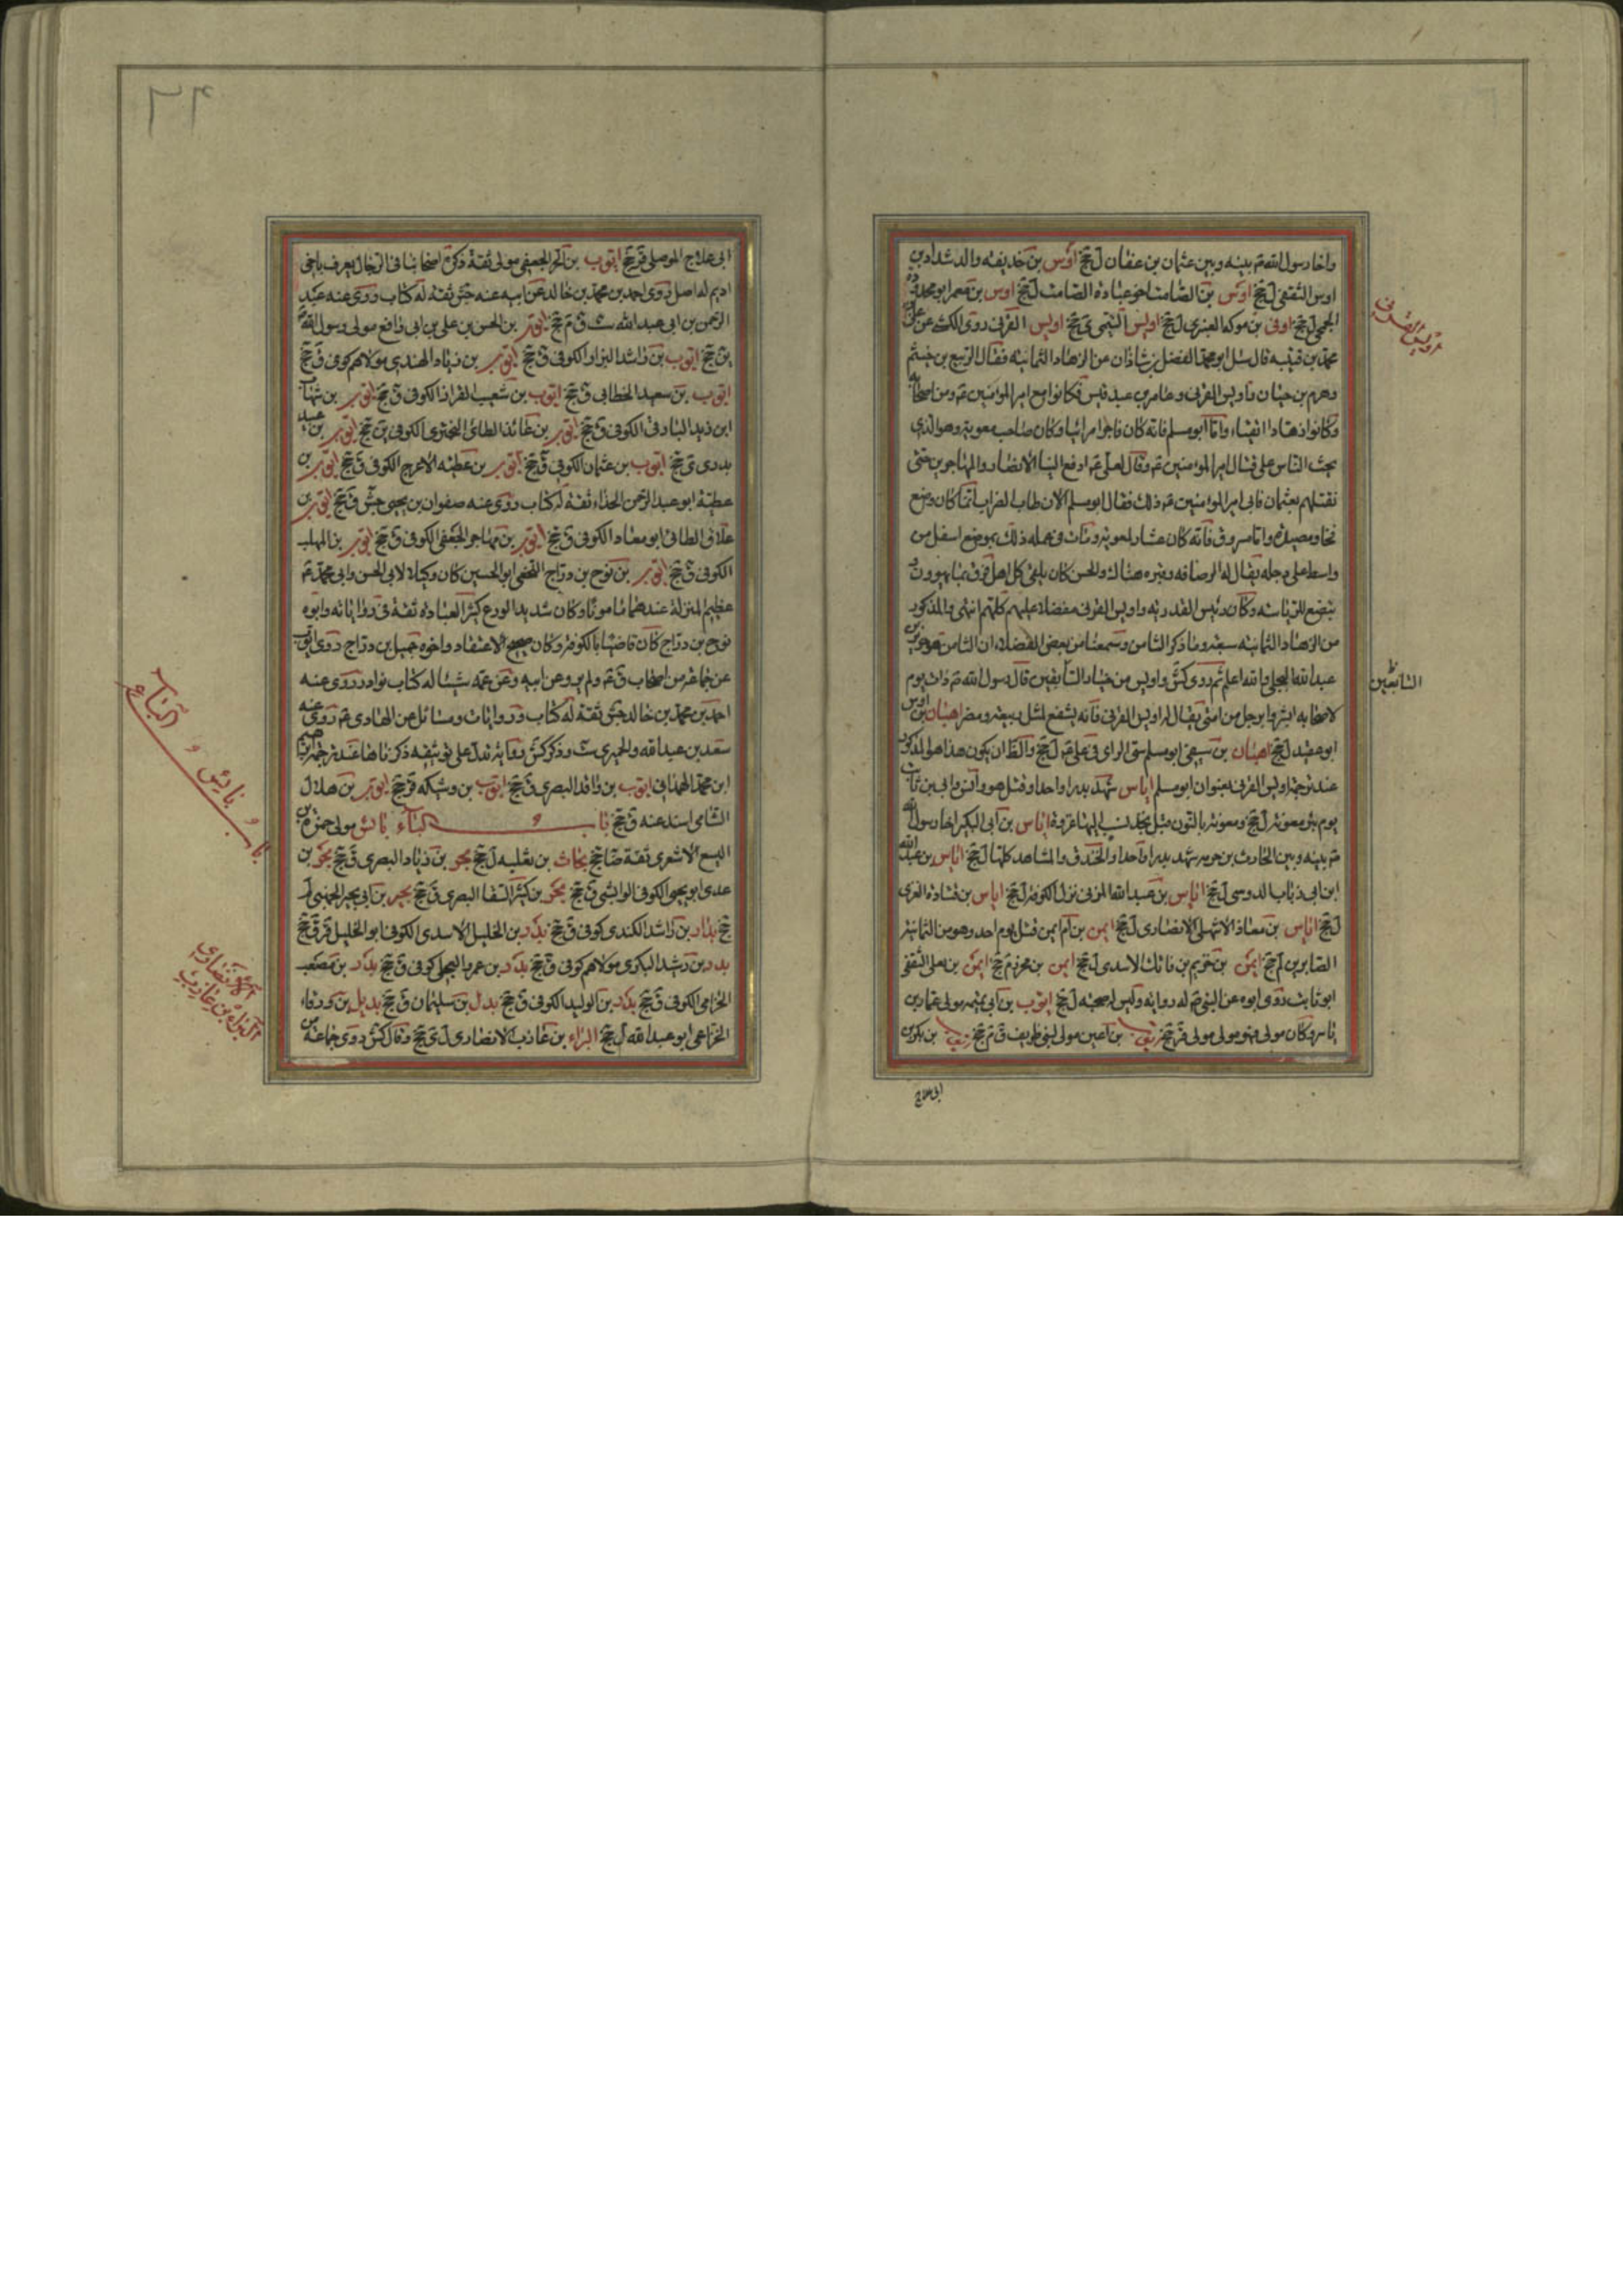 واخا رسول الله ص بينه وبين عثمان بن عفان ل جخ اوس بن حذيفه والد شداد بن
اوس الثقفي ل جخ اوس بن الصامت اخو عبادة الصامت ل جخ اوس بن معمر ابو محذورة
الجمحي ل جخ اوفى بن موكه العنبري ل جخ اويس التيمي ي جخ اويس القرني روى الكشي عن علي بن
محمد بن قتيبه قال سئل ابو محمد الفضل بن شاذان عن الزهاد الثمانيه فقال الربيع بن خيثم
وهرم بن حيان واويس القرني وعامر بن عبد قيس فكانوا مع امير المؤمنين ع ومن اصحابه
وكانوا زهادا اتقياء واما ابو مسلم فانه كان فاجرا مرائيا وكان صاحب معوية وهو الذي
يحث الناس على قتال امير المؤمنين ع وقال لعلي ع ادفع الينا الانصار والمهاجرين حتى
نقتلهم بعثمان فابى امير المؤمنين ع ذلك فقال ابو مسلم الآن طاب الضراب انما كان وضع
فخا ومصيدة واما مسروق فانه كان عشارا لمعوية ومات في عمله ذلك بموضع اسفل من
واسط على دجله يقال له الرصافه وقبره هناك والحسن كان يلقى كل اهل فرقة بما يهوون و
يتصنع للرئاسه وكان رئيس القدريه واويس القرني مفضلا عليهم كلهم انتهى والمذكور
من الزهاد الثمانيه سبعة وما ذكر الثامن وسمعنا من بعض الفضلاء ان الثامن هو جرير بن
عبد الله البجلي والله اعلم ثم روى كش واويس من خيار التابعين قال رسول الله ص ذات يوم
لاصحابه ابشروا برجل من امتي يقال له اويس القرني فانه يشفع لمثل ربيعة ومضر اهبان بن اوس
ابو عقبه ل جخ اهبان بن صيفي ابو مسلم سيئ الراي في علي ع ل جخ والظ ان يكون هذا هو المذكور
عند ترجمة اويس القرني بعنوان ابو مسلم اياس شهد بدرا واحدا وقتل هو وانس وابي بن ثابت
يوم بئر معونة ل جخ ومعونة بالنون اياس بن ابي البكير اخا رسول الله
ص بينه وبين الحارث بن خزمه شهد بدرا واحدا والخندق والمشاهد كلها ل جخ اياس بن عبد الله
ابن ابي ذباب الدوسي ل جخ اياس بن عبد الله المزني نزل الكوفة ل جخ اياس بن قتادة العنزي
ل جخ اياس بن معاذ الاشهلي الانصاري ل جخ ايمن بن ام ايمن قتل يوم احد وهو من الثمانية
الصابرين ل جخ ايمن بن خريم بن فاتك الاسدي ل جخ ايمن بن محرز م جخ ايمن بن يعلى الثقفي
ابو ثابت روى ابوه عن النبي ص له روايه وليس له صحبه ل جخ ايوب بن ابي تميمه مولى عمار بن
ياسر وكان مولى فهو مولى مولى قر جخ ايوب بن اعين مولى لبني طريف ق م جخ ايوب بن بكر بن
ابي علاج
اويس القرني
التابعين
ابي علاج الموصلي قر جخ ايوب بن الحر الجعفي مولى ثقة ذكره اصحابنا في الرجال يعرف باخي
اديم له اصل روى احمد بن محمد بن خالد عن ابيه عنه جش ثقة له كتاب روى عنه عبد
الرحمن بن ابي عبد الله ست ق م جخ ايوب بن الحسن بن علي بن ابي رافع مولى رسول الله ص
ين جخ ايوب بن راشد البزاز الكوفي ق جخ ايوب بن زياد الهندي مولاهم كوفي ق جخ
ايوب بن سعيد الخطابي ق جخ ايوب بن شعيب القزاز الكوفي ق جخ ايوب بن شهاب
ابن زيد البارقي الكوفي ق جخ ايوب بن عائذ الطائي البختري الكوفي ين جخ ايوب بن عبيد
بدري ي جخ ايوب بن عثمان الكوفي ق جخ ايوب بن عطيه الاعرج الكوفي ق جخ ايوب بن
عطية ابو عبد الرحمن الحذاء ثقة له كتاب روى عنه صفوان بن يحيى جش ق جخ ايوب بن
علاق الطائي ابو معاذ الكوفي ق جخ ايوب بن مهاجر الجعفي الكوفي ق جخ ايوب بن المهلب
الكوفي ق جخ ايوب بن نوح بن دراج النخعي ابو الحسين كان وكيلا لابي الحسن وابي محمد ع
عظيم المنزلة عندهما مامونا وكان شديد الورع كثير العبادة ثقة في رواياته وابوه
نوح بن دراج كان قاضيا بالكوفة وكان صحيح الاعتقاد واخوه جميل بن دراج روى ايوب
عن جماعة من اصحاب ق ع ولم يرو عن ابيه وعن عمه شيئا له كتاب نوادر روى عنه
احمد بن محمد بن خالد جش ثقة له كتاب وروايات ومسائل عن الهادي ع روى عنه
سعد بن عبد الله والحميري ست وذكر كش رواية تدل على توثيقه ذكرناها عند ترجمة ابراهيم
ابن محمد الهمداني ايوب بن واقد البصري ق جخ ايوب بن وشيكه قر جخ ايوب بن هلال
الشامي اسند عنه ق جخ باب الباء بائس مولى حمزة بن
اليسع الاشعري ثقة ضا جخ بحاث بن ثعلبه ل جخ بحر بن زياد البصري ق جخ بحر بن
عدي ابو يحيى الكوفي الوابشي ق جخ بحر بن كثير السقا البصري ق جخ بجير بن ابي بجير الجهني ل
جخ بدار بن راشد الكندي كوفي ق جخ بدر بن الخليل الاسدي الكوفي ابو الخليل قر ق جخ
بدر بن رشيد البكري مولاهم كوفي ق جخ بدر بن عمرو البجلي كوفي ق جخ بدر بن مصعب
الخزامي الكوفي ق جخ بدر بن الوليد الكوفي ق جخ بدل بن سليمان ق جخ بديل بن ورقاء
الخزاعي ابو عبد الله ل جخ البراء بن عازب الانصاري ل ي جخ وقال كش روى جماعة من
باب الباء و بائس
البراء بن عازب
الانصاري